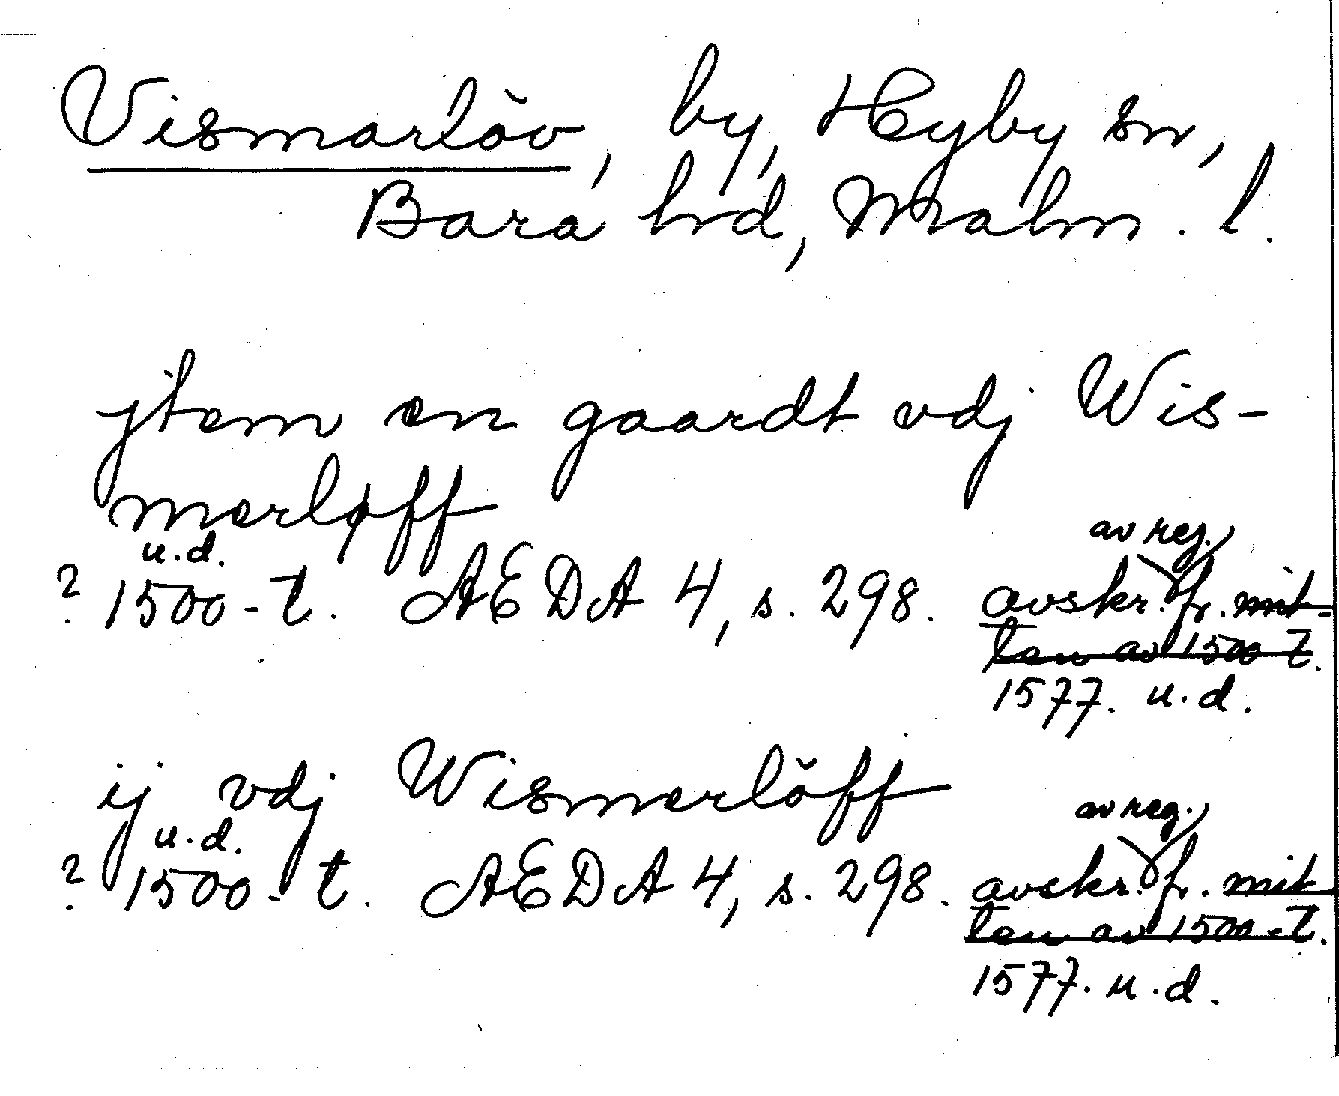 Vismarlöv, by, Hyby sn,
Bara hd, Malm. l.
jtem en gaardt vdj Wis-
merløff
u.d.
av reg.
? 1500-t. AEDA 4, s. 298. avskr. fr. mit-
ten av 1500 t.
1577. u.d.
ij vdj Wismerlöff
u.d.
av reg.
? 1500-t. AEDA 4, s. 298. avskr. fr. mit
ten av 1500-t.
1577. u.d.